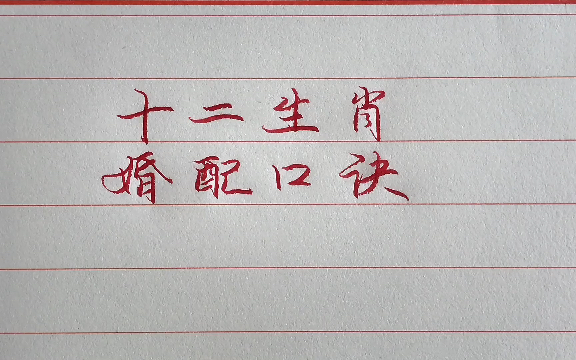 十二生肖
婚配口诀